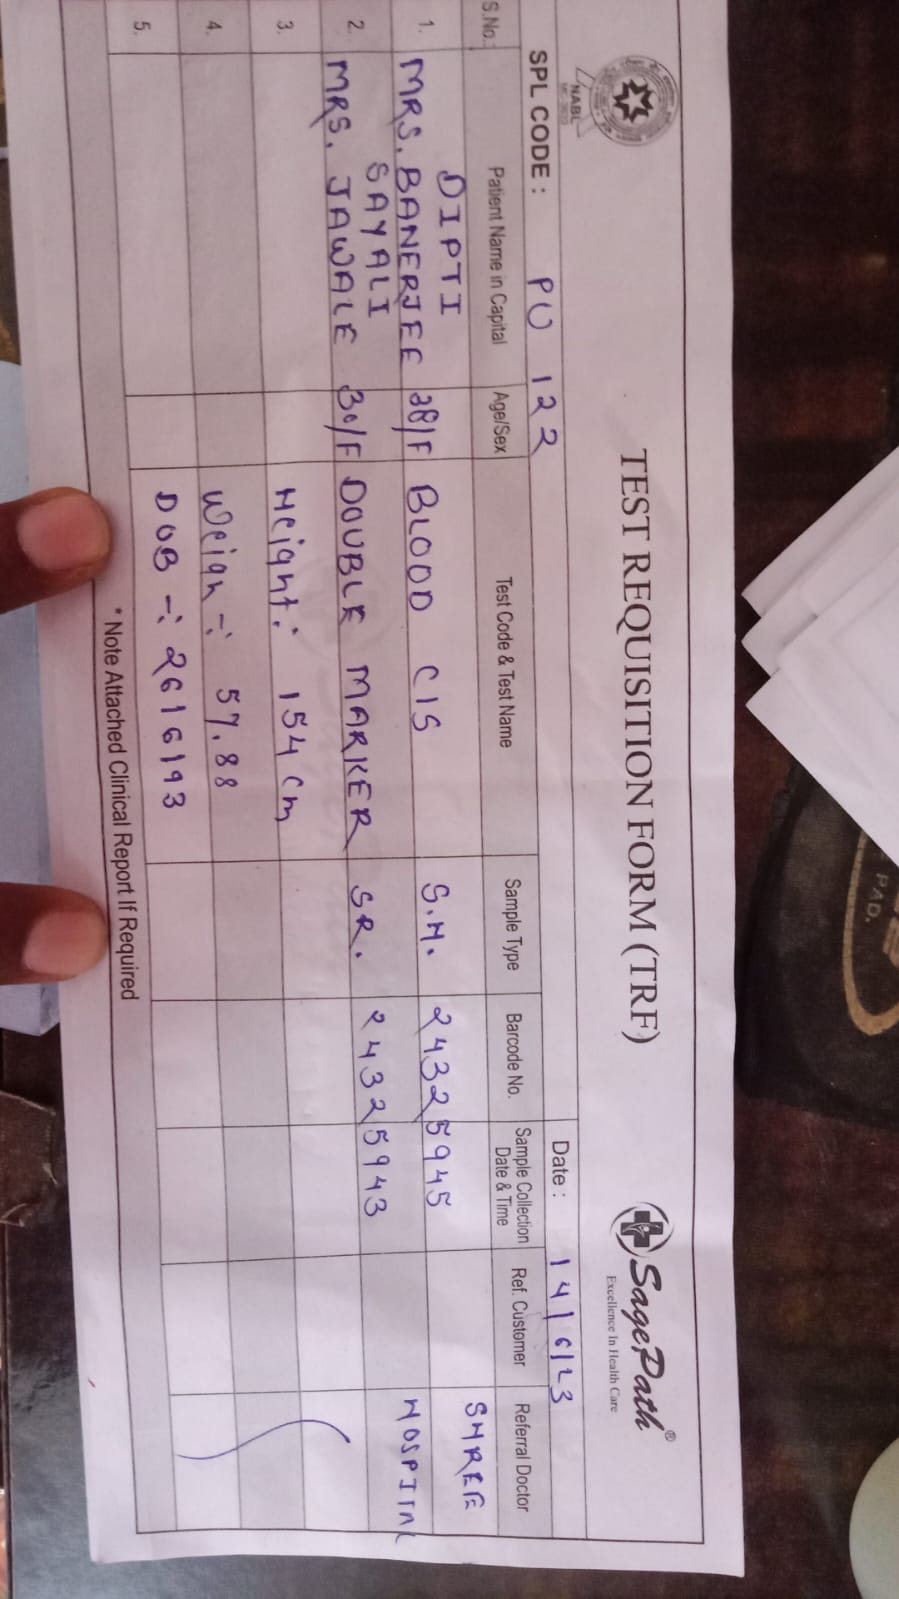 NABL
MC-3633
TEST REQUISITION FORM (TRF)
SagePath®
Excellence In Health Care
SPL CODE : PU 122
Date : 14/6/23
S.No.: Patient Name in Capital Age/Sex Test Code & Test Name Sample Type Barcode No. Sample Collection Date & Time Ref. Customer Referral Doctor
DIPTI SHREE
1. MRS. BANERJEE 28/F BLOOD C/S S.H. 24325945
SAYALI HOSPITAL
2. MRS. JAWALE 30/F DOUBLE MARKER SR. 24325943
3. Height: 154 cm
4. Weign -: 57.88
5. DOB -: 26/6/93
* Note Attached Clinical Report If Required
PAD.